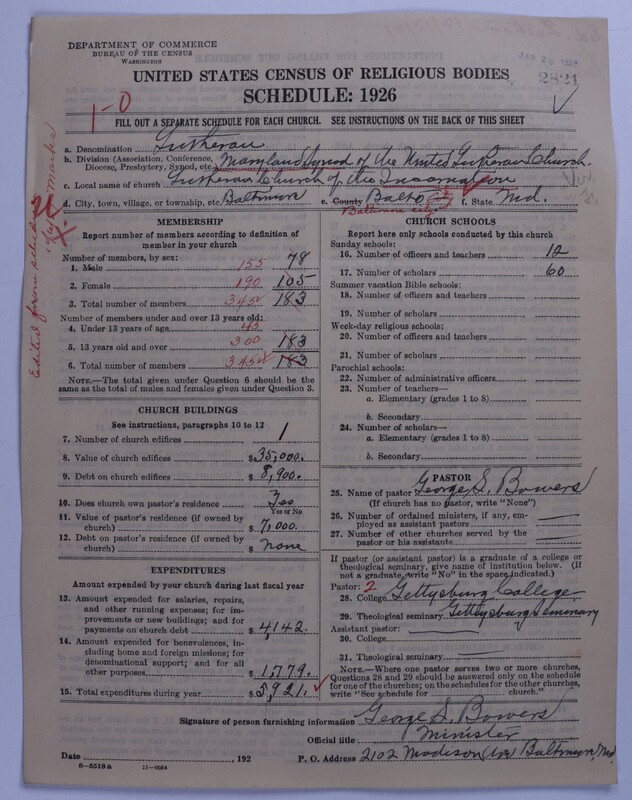 DEPARTMENT OF COMMERCE
BUREAU OF THE CENSUS
WASHINGTON
JAN 26 1927
2821
UNITED STATES CENSUS OF RELIGIOUS BODIES
SCHEDULE: 1926
1-0
FILL OUT A SEPARATE SCHEDULE FOR EACH CHURCH. SEE INSTRUCTIONS ON THE BACK OF THIS SHEET
a. Denomination Lutheran
b. Division (Association, Conference, Diocese, Presbytery, Synod, etc.) Maryland Synod of the United Lutheran Church.
c. Local name of church Lutheran Church of the Incarnation
d. City, town, village, or township, etc. Baltimore e. County Balto f. State Md.
Baltimore city
Edited from sched
MEMBERSHIP
Report number of members according to definition of
member in your church
Number of members, by sex:
1. Male 155 78
2. Female 190 105
3. Total number of members 345 183
Number of members under and over 13 years old:
4. Under 13 years of age 45
5. 13 years old and over 300 183
6. Total number of members 345 183
NOTE.—The total given under Question 6 should be
same as the total of males and females given under Question 3.
CHURCH BUILDINGS
See instructions, paragraphs 10 to 12
7. Number of church edifices 1
8. Value of church edifices $35,000.
9. Debt on church edifices $8,900.
10. Does church own pastor's residence Yes
Yes or No
11. Value of pastor's residence (if owned by
church) $7,000.
12. Debt on pastor's residence (if owned by
church) $ none
EXPENDITURES
Amount expended by your church during last fiscal year
13. Amount expended for salaries, repairs,
and other running expenses; for im-
provements or new buildings; and for
payments on church debt $4,142.
14. Amount expended for benevolences, in-
cluding home and foreign missions; for
denominational support; and for all
other purposes $1,779.
15. Total expenditures during year $5,921.
CHURCH SCHOOLS
Report here only schools conducted by this church
Sunday schools:
16. Number of officers and teachers 12
17. Number of scholars 60
Summer vacation Bible schools:
18. Number of officers and teachers
19. Number of scholars
Week-day religious schools:
20. Number of officers and teachers
21. Number of scholars
Parochial schools:
22. Number of administrative officers
23. Number of teachers—
a. Elementary (grades 1 to 8)
b. Secondary
24. Number of scholars—
a. Elementary (grades 1 to 8)
b. Secondary
PASTOR
25. Name of pastor George S. Bowers
(If church has no pastor, write "None")
26. Number of ordained ministers, if any, em-
ployed as assistant pastors
27. Number of other churches served by the
pastor or his assistants
If pastor (or assistant pastor) is a graduate of a college or
theological seminary, give name of institution below. (If
not a graduate, write "No" in the space indicated.)
Pastor: 2
28. College Gettysburg College
29. Theological seminary Gettysburg Seminary
Assistant pastor:
30. College
31. Theological seminary
NOTE.—Where one pastor serves two or more churches,
Questions 28 and 29 should be answered only on the schedule
for one of the churches; on the schedules for the other churches,
write "See schedule for church."
Signature of person furnishing information George S. Bowers
Official title Minister
Date , 192 P. O. Address 2102 Madison Ave Baltimore, Md.
8-5518a 11-9054